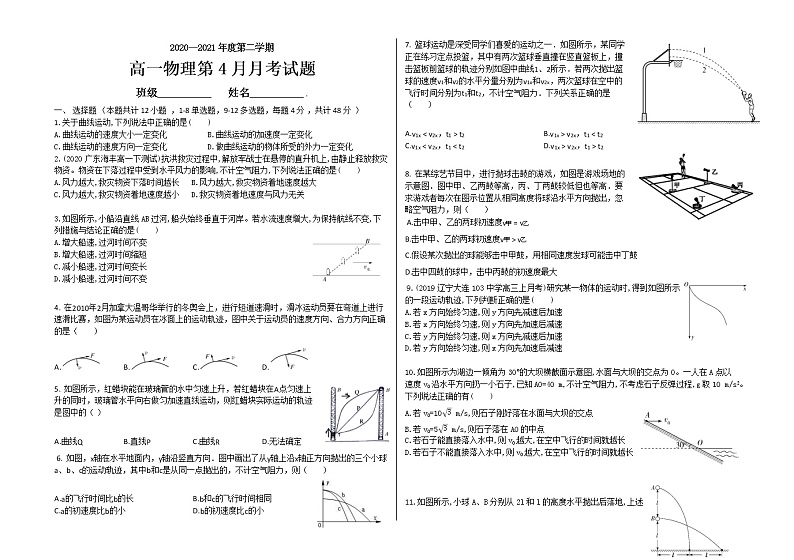 2020—2021 年度第二学期
高一物理第 4 月月考试题
班级________ 姓名________.
一、 选择题（本题共计 12 小题 ，1-8 单选题，9-12 多选题，每题 4 分 ，共计 48 分 ）
1.关于曲线运动,下列说法中正确的是( )
A.曲线运动的速度大小一定变化 B.曲线运动的加速度一定变化
C.曲线运动的速度方向一定变化 D.做曲线运动的物体所受的外力一定变化
2.(2020 广东海丰高一下测试)抗洪救灾过程中,解放军战士在悬停的直升机上,由静止释放救灾
物资。物资在下落过程中受到水平风力的影响,不计空气阻力,下列说法正确的是( )
A.风力越大,救灾物资下落时间越长 B.风力越大,救灾物资着地速度越大
C.风力越大,救灾物资着地速度越小 D.救灾物资着地速度与风力无关
3.如图所示,小船沿直线 AB 过河,船头始终垂直于河岸。若水流速度增大,为保持航线不变,下
列措施与结论正确的是( )
A.增大船速,过河时间不变
B.增大船速,过河时间缩短
C.减小船速,过河时间变长
D.减小船速,过河时间不变
B
v水
A
4. 在2010年2月加拿大温哥华举行的冬奥会上，进行短道速滑时，滑冰运动员要在弯道上进行
速滑比赛，如图为某运动员在冰面上的运动轨迹，图中关于运动员的速度方向、合力方向正确
的是（ ）
A. F v B. v F C. F v D. v F
5. 如图所示，红蜡块能在玻璃管的水中匀速上升，若红蜡块在A点匀速上
升的同时，玻璃管水平向右做匀加速直线运动，则红蜡块实际运动的轨迹
是图中的（ ）
A.曲线Q B.直线P C.曲线R D.无法确定
Q
P
R
6. 如图，x轴在水平地面内，y轴沿竖直方向．图中画出了从y轴上沿x轴正方向抛出的三个小球
a、b、c的运动轨迹，其中b和c是从同一点抛出的，不计空气阻力，则（ ）
A.a的飞行时间比b的长 B.b和c的飞行时间相同
C.a的初速度比b的小 D.b的初速度比c的小
y
b
c a
O x
7. 篮球运动是深受同学们喜爱的运动之一．如图所示，某同学
正在练习定点投篮，其中有两次篮球垂直撞在竖直篮板上，撞
击篮板前篮球的轨迹分别如图中曲线1、2所示．若两次抛出篮
球的速度v1和v2的水平分量分别为v1x和v2x，两次篮球在空中的
飞行时间分别为t1和t2，不计空气阻力．下列关系正确的是
（ ）
1
2
A.v1x < v2x，t1 > t2 B.v1x > v2x，t1 < t2
C.v1x < v2x，t1 < t2 D.v1x > v2x，t1 > t2
8. 在某综艺节目中，进行抛球击鼓的游戏，如图是游戏场地的
示意图．图中甲、乙两鼓等高，丙、丁两鼓较低但也等高．要
求游戏者每次在图示位置从相同高度将球沿水平方向抛出，忽
略空气阻力，则（ ）
甲
乙
丙
丁
A.击中甲、乙的两球初速度v甲 = v乙
B.击中甲、乙的两球初速度v甲 > v乙
C.假设某次抛出的球能够击中甲鼓，用相同速度发球可能击中丁鼓
D.击中四鼓的球中，击中丙鼓的初速度最大
9.(2019 辽宁大连 103 中学高三上月考)研究某一物体的运动时,得到如图所示
的一段运动轨迹,下列判断正确的是( )
A.若 x 方向始终匀速,则 y 方向先减速后加速
B.若 x 方向始终匀速,则 y 方向先加速后减速
C.若 y 方向始终匀速,则 x 方向先减速后加速
D.若 y 方向始终匀速,则 x 方向先加速后减速
O
x
y
10.如图所示为湖边一倾角为 30°的大坝横截面示意图,水面与大坝的交点为 O。一人在 A 点以
速度 v0沿水平方向扔一个石子,已知 AO=40 m,不计空气阻力,不考虑石子反弹过程,g 取 10 m/s²。
下列说法正确的有( )
A.若 v0=10√3 m/s,则石子刚好落在水面与大坝的交点
B.若 v0=5√3 m/s,则石子落在 AO 的中点
C.若石子能直接落入水中,则 v0越大,在空中飞行的时间就越长
D.若石子不能直接落入水中,则 v0越大,在空中飞行的时间就越长
A v0
30° O
11.如图所示,小球 A、B 分别从 2l 和 l 的高度水平抛出后落地,上述
A
l
B
l
l l